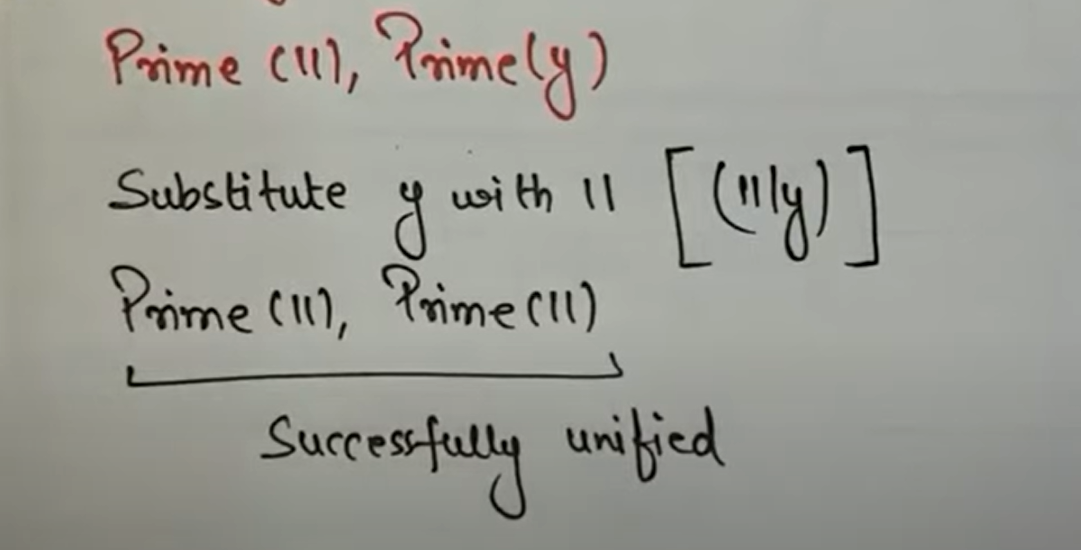 Prime (11), Prime(y)
Substitute y with 11 [(11/y)]
Prime (11), Prime (11)
Successfully unified